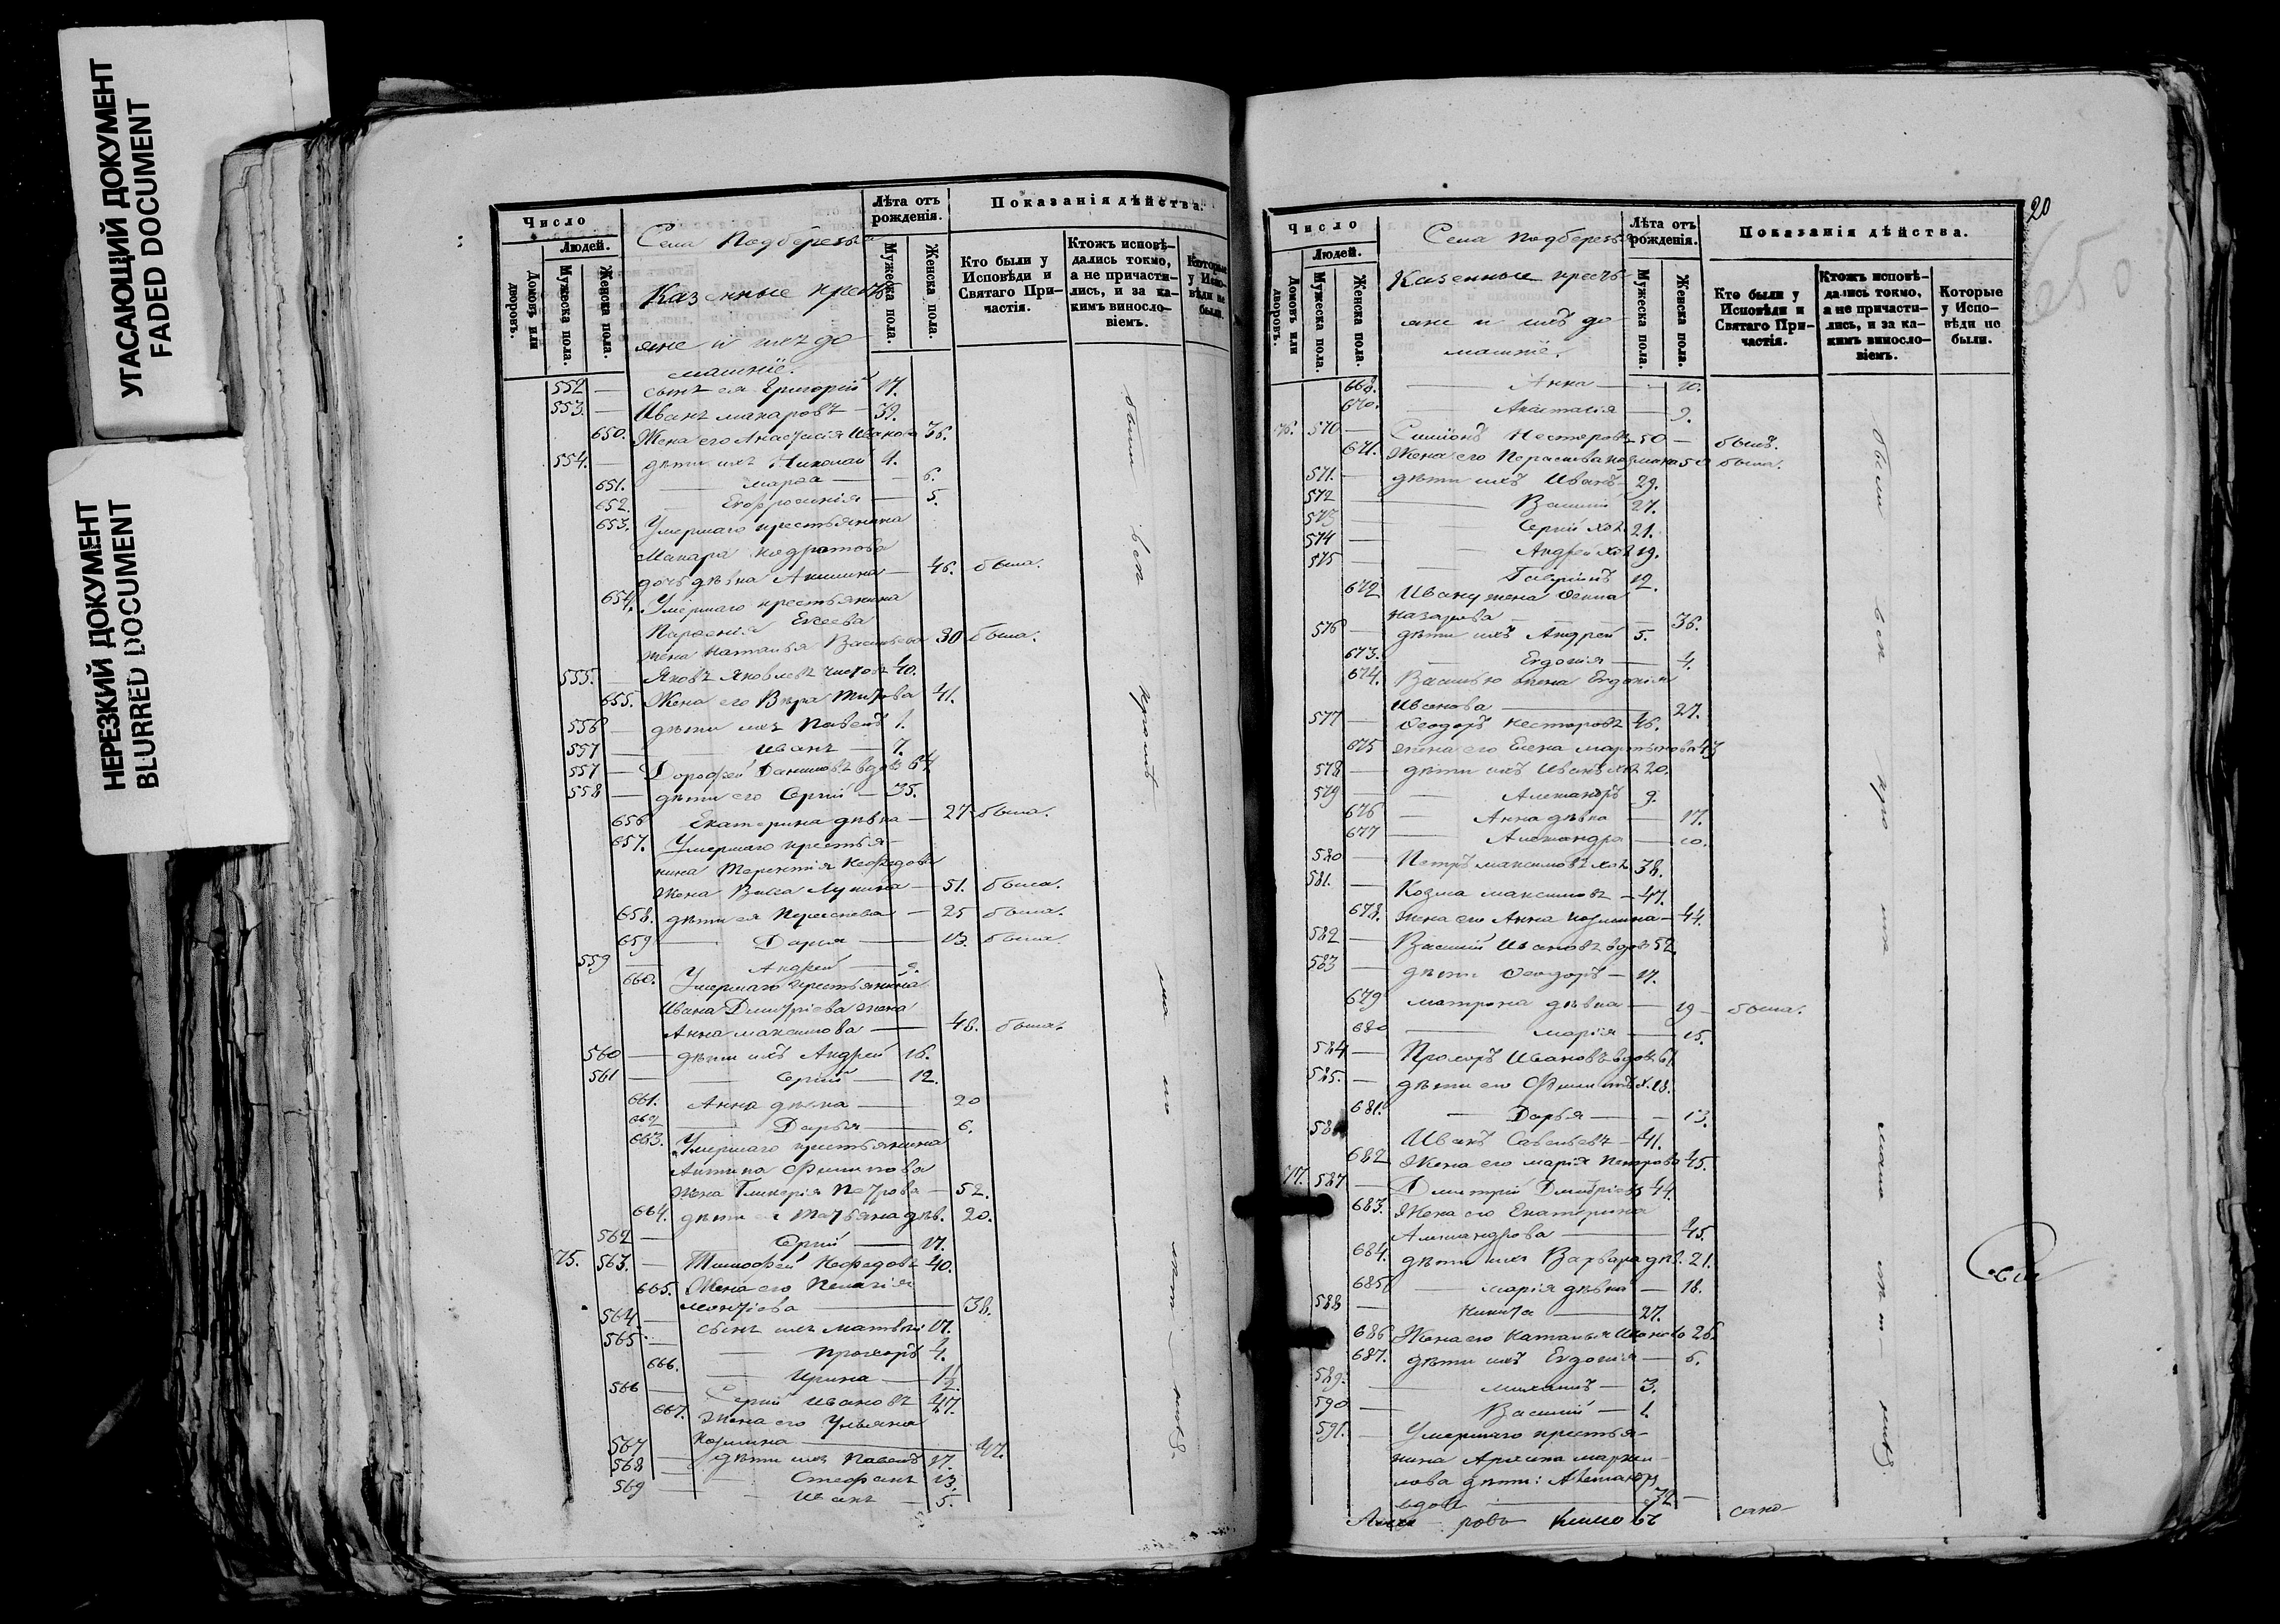 УГАСАЮЩИЙ ДОКУМЕНТ
FADED DOCUMENT
НЕРЕЗКИЙ ДОКУМЕНТ
BLURRED DOCUMENT
Число
Людей.
Домовъ или дворовъ.
Мужеска пола.
Женска пола.
Села Подберезья
Казенные кресть
яне и ихъ до
машніе.
Лѣта отъ рожденія.
Мужеска пола.
Женска пола.
Показанія дѣйства.
Кто были у Исповѣди и Святаго Причастія.
Ктожъ исповѣдались токмо, а не причастились, и за какимъ винословіемъ.
Которые у Исповѣди не были.
552 — сынъ ея Григорій 17.
553. — Иванъ Макаровъ — 39.
650. Жена его Анастасія Иванова 36.
554. — дѣти ихъ Николай 1.
651. — Марѳа — 6.
652. — Евфросинія — 5.
653. Умершаго крестьянина
Макара
дочь дѣвка Акилина — 46. была.
654. Умершаго крестьянина
Евсеева
жена Наталья Васильева 30 была.
555. — Яковъ Яковлевъ 40.
655. Жена его Вѣра Титова 41.
556 — дѣти ихъ Павелъ 1.
557 — Иванъ — 7.
557 — Дорофей Даниловъ вдовъ 64.
558 — дѣти его Сергій — 35.
656 Екатерина дѣвка — 27 была.
657. Умершаго крестья-
нина Терентія Нефедова
жена Васса Лукина — 51. была.
658. дѣти ея Параскева — 25 была.
659 — Дарья — 13. была.
559 — Андрей — 9.
660. Умершаго крестьянина
Ивана Дмитріева жена
Анна Максимова — 48. была.
560 — дѣти ихъ Андрей 16.
561 — Сергій — 12.
661. Анна дѣвка — 20
662 — Дарья — 6.
663. Умершаго крестьянина
Антипа Филипова
жена Гликерія Петрова — 52.
664. дѣти ея Татьяна дѣв. 20.
562 — Сергій — 17.
75. 563. — Тимофей Нефедовъ 40.
665. Жена его Пелагія
— 38.
564. — сынъ ихъ Матвей 17.
565. — Прохоръ 4.
666. — Ирина — 1½
566 — Сергій Ивановъ 47.
667. Жена его Ульяна
Козмина — 47.
567 — дѣти ихъ Павелъ 17.
568 — Стефанъ 13.
569 — Иванъ — 5.
были
всѣ
кромѣ
20
Число
Людей.
Домовъ или дворовъ.
Мужеска пола.
Женска пола.
Села Подберезья
Казенные кресть
яне и ихъ до
машніе.
Лѣта отъ рожденія.
Мужеска пола.
Женска пола.
Показанія дѣйства.
Кто были у Исповѣди и Святаго Причастія.
Ктожъ исповѣдались токмо, а не причастились, и за какимъ винословіемъ.
Которые у Исповѣди не были.
668. — Анна — 10.
670. — Анастасія — 9.
76. 570 — Симіонъ Нестеровъ 50 — былъ.
671. Жена его Параскева Козмина 50 была.
571. — дѣти ихъ Иванъ 29.
572 — Василій 27.
573 — Сергій хол. 21.
574 — Андрей хол 19.
575 — Гавріилъ 12.
672 Ивану жена
Назарова — 36.
576 — дѣти ихъ Андрей 5.
673. — Евдокія — 4.
674. Василью жена Евдокія
Иванова — 27.
577 — Ѳеодоръ Нестеровъ 46.
675 жена его Елена Мартынова 43
578 — дѣти ихъ Иванъ хол 20.
579 — Александръ 9.
676 — Анна дѣвка — 17.
677 — Александра — 10.
580 — Петръ Максимовъ хол 38.
581. — Козма Максимовъ — 47.
678. жена его Анна Козмина — 44.
582 — Василій Ивановъ вдовъ 52
583 — дѣти Ѳеодоръ — 17.
679 Матрона дѣвка — 19 — была.
680 — Марія — 15.
584 — Прохоръ Ивановъ вдовъ 61
585. — дѣти его Филипъ х. 28.
681. — Дарья — 13.
586 Иванъ Савельевъ — 41.
682 Жена его Марія Петрова 45.
77. 587 — Дмитрій Дмитріевъ 44.
683. Жена его Екатерина
Александрова — 45.
684. дѣти ихъ Варвара дѣв. 21.
685. — Марія дѣвка — 18.
588 — Никита — 27.
686 Жена его Наталья Иванова 26.
687. дѣти ихъ Евдокія — 6.
589. — Михаилъ — 3.
590 — Василій — 1.
591. — Умершаго крестья-
нина
дѣти: Александръ
вдовъ — 32 —
были
всѣ